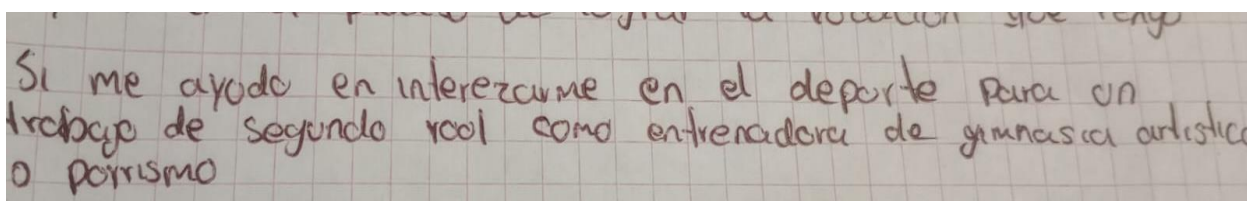 que tengo
Si me ayodo en interezarme en el deporte para un
trabajo de segundo rool como entrenadora de gimnasia artistica
o porrismo